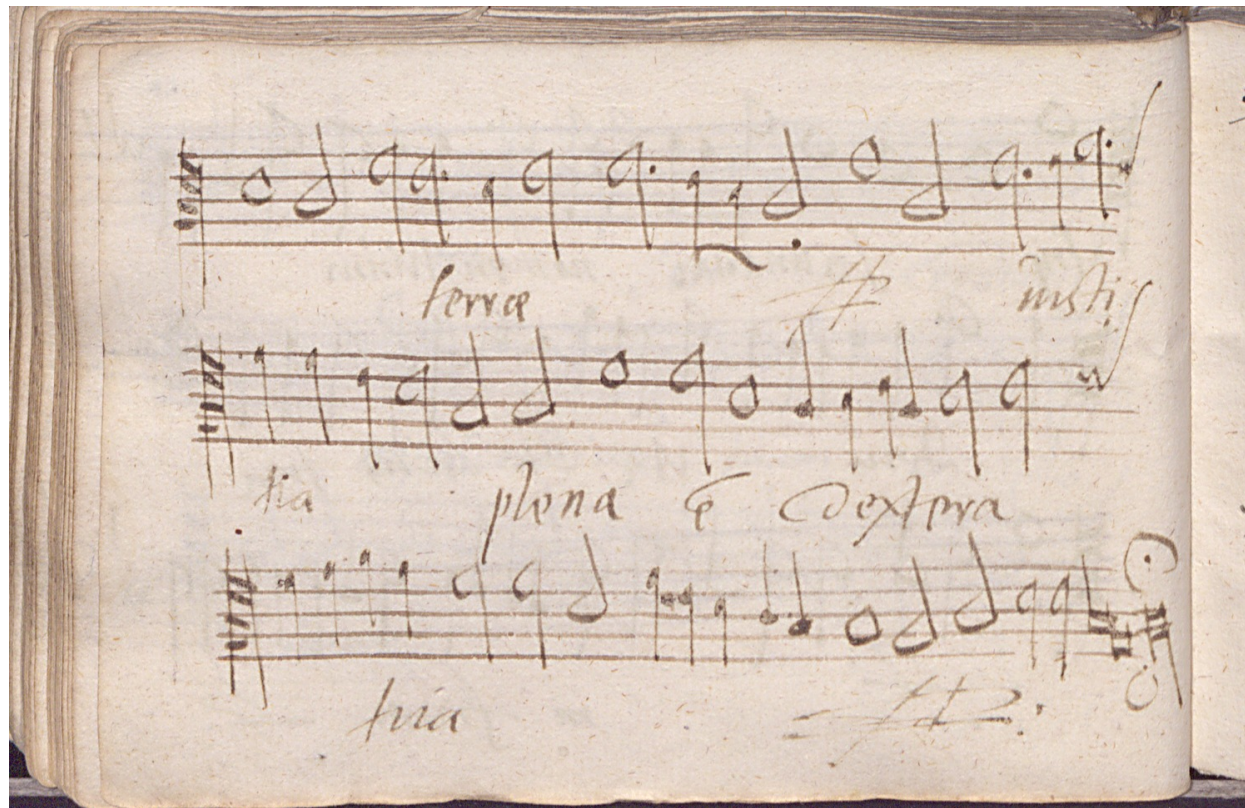 terræ iusti
tia plena ē dextera
tua